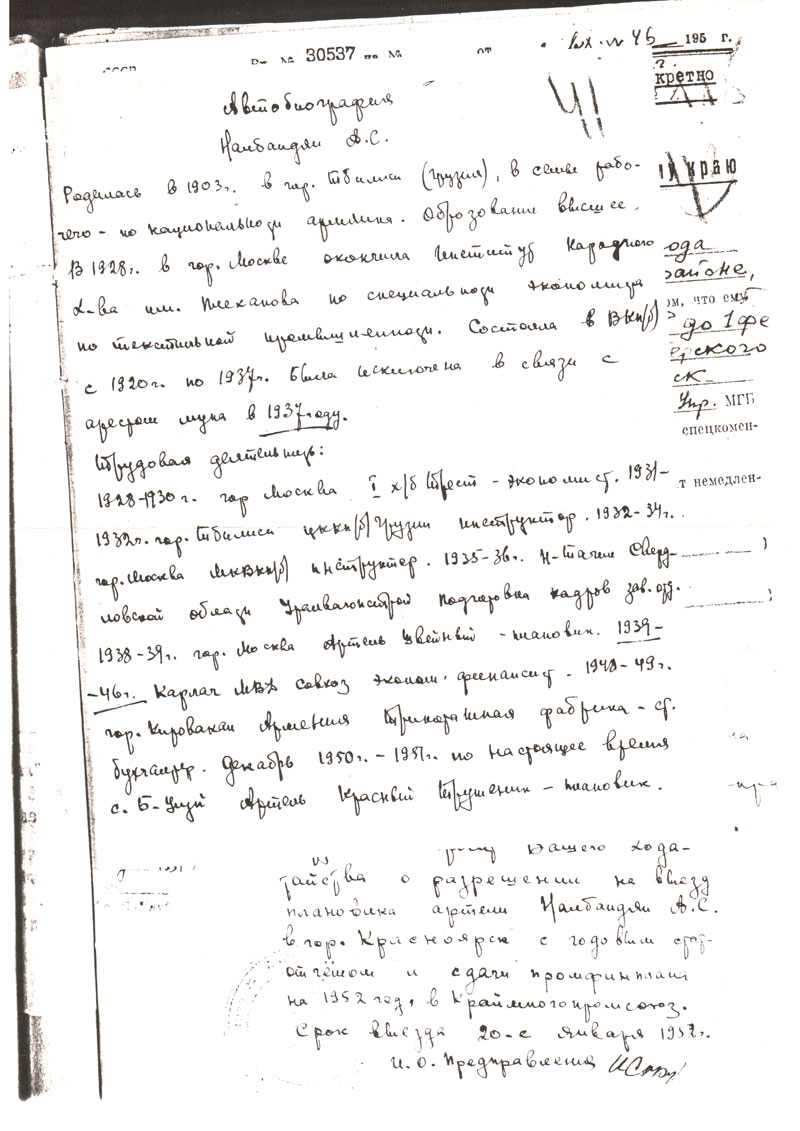 30537
Вх. № 46 195 г.
кретно
Автобиография
Налбандян А.С.
краю
Родилась в 1903г. в гор. Тбилиси (Грузия), в семье рабо-
чего - по национальноди армянка. Образование высшее.
В 1928г. в гор. Москве окончила Институт Народного
Х-ва им. Плеханова по специальноди экономиста
по текстильной промышленноди. Состояла в ВКП/б/
с 1920г. по 1937г. была исключена в связи с
арестом мужа в 1937 году.
ода
районе,
ом, что ему
до 1 фе
ерского
ск
Упр. МГБ
спецкомен-
т немедлен-
Трудовая деятельноть:
1928-1930г. гор Москва I х/б Трест - экономист. 1931-
1932г. гор. Тбилиси ЦККП/б/ Грузии инструктор. 1932-34г.
гор. Москва МКВКП/б/ инструктор. 1935-36г. Н-Тагил Сверд-
ловской облади Уралвагонстрой подготовка кадров зав. отд.
1938-39г. гор. Москва Артель Швейный - плановик. 1939-
-46г. Карлаг МВД совхоз эконом. финансист. 1948-49г.
гор. Кировакан Армения Трикотажная фабрика - ст.
бухгалтер. Декабрь 1950г. - 1951г. по настоящее время
с. Б-Улуй Артель Красный Труженик - плановик.
Вашего хода-
тайства о разрешении на выезд
плановика артели Налбандян А.С.
в гор. Красноярск с годовым
отчётом и сдачи промфинплана
на 1952 год, в Краймногопромсоюз.
Срок выезда 20-е января 1952г.
И. О. Предправления